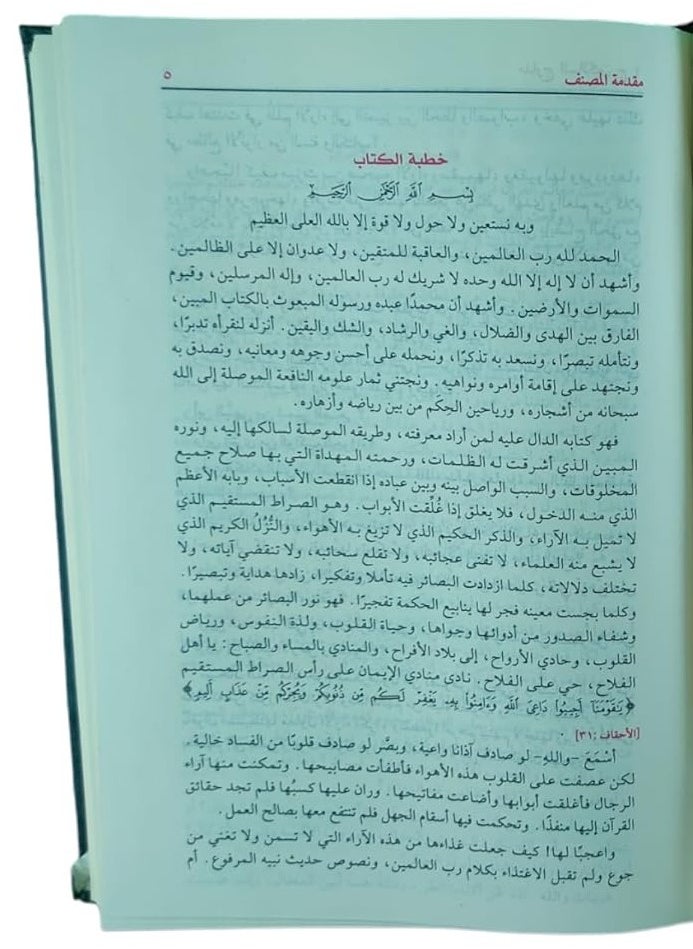 مقدمة المصنف ٥
خطبة الكتاب
بِسْمِ اللَّهِ الرَّحْمَٰنِ الرَّحِيمِ
وبه نستعين ولا حول ولا قوة إلا بالله العلى العظيم
الحمد لله رب العالمين، والعاقبة للمتقين، ولا عدوان إلا على الظالمين.
وأشهد أن لا إله إلا الله وحده لا شريك له رب العالمين، وإله المرسلين، وقيوم
السموات والأرضين. وأشهد أن محمدًا عبده ورسوله المبعوث بالكتاب المبين،
الفارق بين الهدى والضلال، والغي والرشاد، والشك واليقين. أنزله لنقرأه تدبرًا،
ونتأمله تبصرًا، ونسعد به تذكرًا، ونحمله على أحسن وجوهه ومعانيه، ونصدق به
ونجتهد على إقامة أوامره ونواهيه. ونجتني ثمار علومه النافعة الموصلة إلى الله
سبحانه من أشجاره، ورياحين الحِكَم من بين رياضه وأزهاره.
فهو كتابه الدال عليه لمن أراد معرفته، وطريقه الموصلة لسالكها إليه، ونوره
المبين الذي أشرقت له الظلمات، ورحمته المهداة التي بها صلاح جميع
المخلوقات، والسبب الواصل بينه وبين عباده إذا انقطعت الأسباب، وبابه الأعظم
الذي منه الدخول، فلا يغلق إذا غُلّقت الأبواب. وهو الصراط المستقيم الذي
لا تميل به الآراء، والذكر الحكيم الذي لا تزيغ به الأهواء، والنُّزُلُ الكريم الذي
لا يشبع منه العلماء، لا تفنى عجائبه، ولا تقلع سحائبه، ولا تنقضي آياته، ولا
تختلف دلالاته، كلما ازدادت البصائر فيه تأملا وتفكيرا، زادها هداية وتبصيرًا.
وكلما بجست معينه فجر لها ينابيع الحكمة تفجيرًا. فهو نور البصائر من عملهما،
وشفاء الصدور من أدوائها وجواها، وحياة القلوب، ولذة النفوس، ورياض
القلوب، وحادي الأرواح، إلى بلاد الأفراح، والمنادي بالمساء والصباح: يا أهل
الفلاح، حي على الفلاح. نادى منادي الإيمان على رأس الصراط المستقيم
﴿يَٰقَوْمَنَآ أَجِيبُوا۟ دَاعِىَ ٱللَّهِ وَءَامِنُوا۟ بِهِۦ يَغْفِرْ لَكُم مِّن ذُنُوبِكُمْ وَيُجِرْكُم مِّنْ عَذَابٍ أَلِيمٍ﴾
[الأحقاف: ٣١].
أَسْمَعَ -واللهِ- لو صادف آذانا واعية، وبصَّر لو صادف قلوبًا من الفساد خالية.
لكن عصفت على القلوب هذه الأهواء فأطفأت مصابيحها. وتمكنت منها آراء
الرجال فأغلقت أبوابها وأضاعت مفاتيحها. وران عليها كسبُها فلم تجد حقائق
القرآن إليها منفذًا. وتحكمت فيها أسقام الجهل فلم تنتفع معها بصالح العمل.
واعجبًا لها! كيف جعلت غذاءها من هذه الآراء التي لا تسمن ولا تغني من
جوع ولم تقبل الاغتذاء بكلام رب العالمين، ونصوص حديث نبيه المرفوع. أم